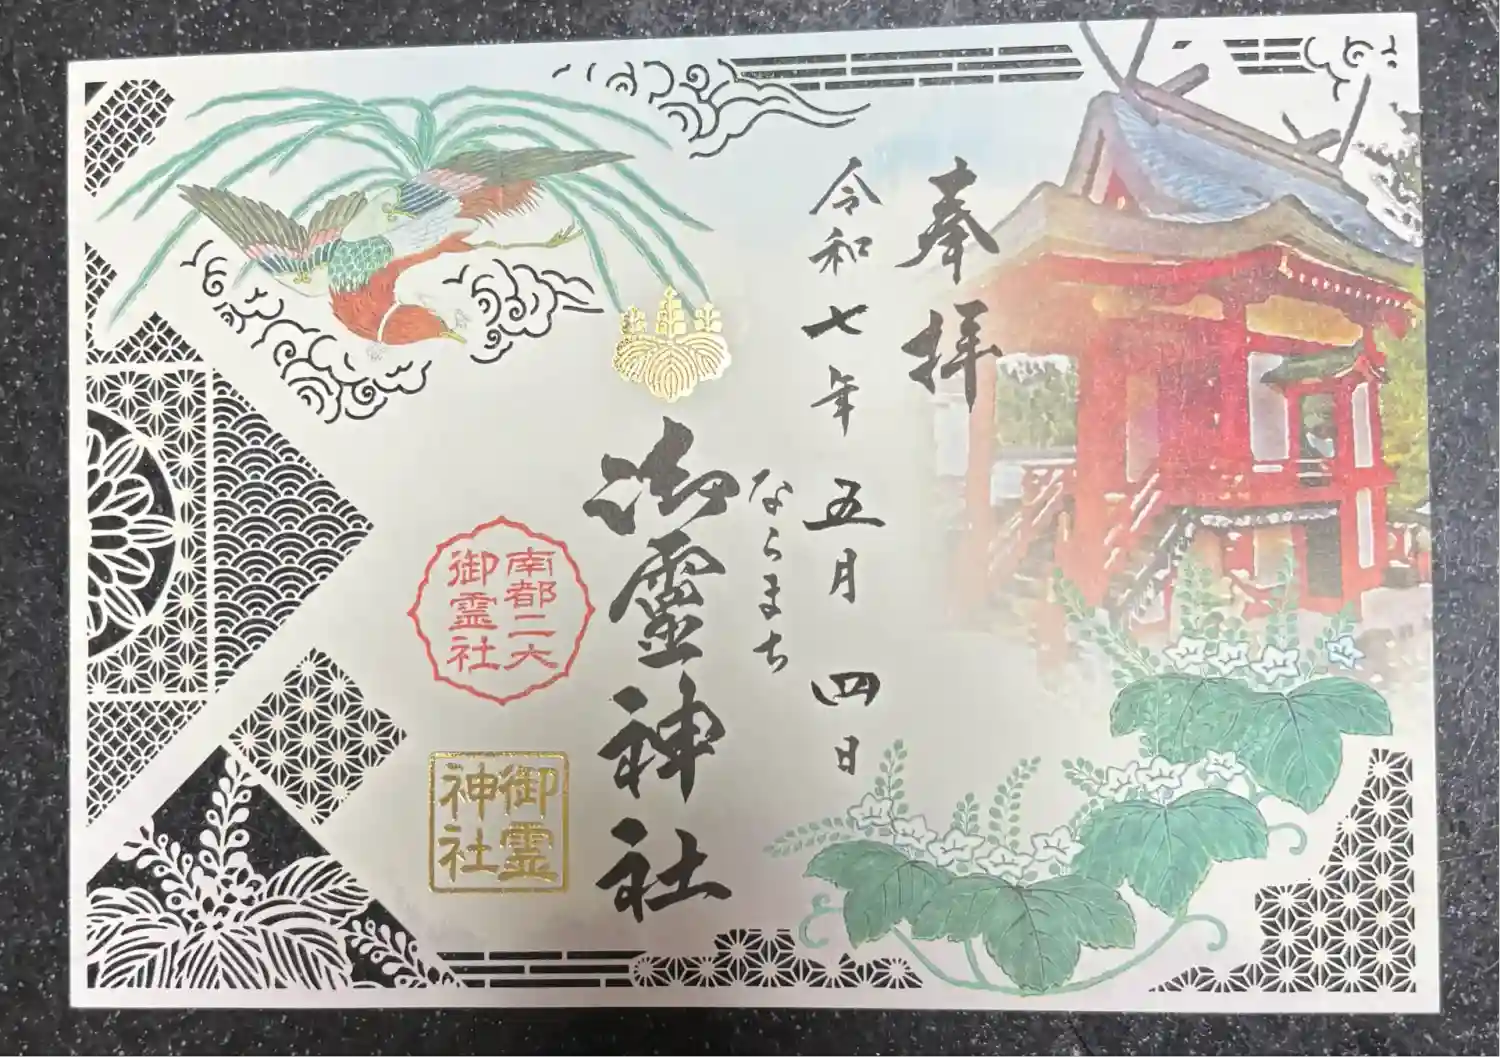 奉拝
令和七年五月四日
ならまち
御霊神社
南都二六
御霊社
御霊
神社